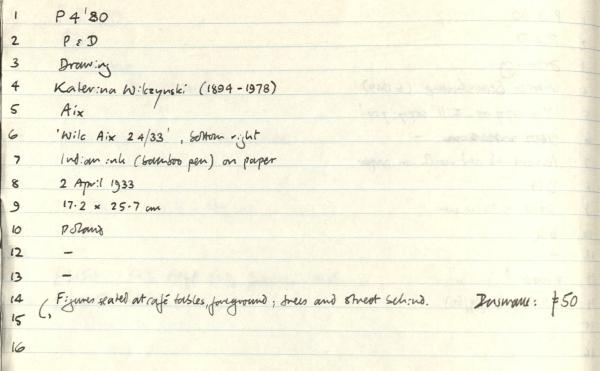 1 P 4'80
2 P & D
3 Drawing
4 Katerina Wilczynski (1894-1978)
5 Aix
6 'Wilc Aix 24/33', bottom right
7 Indian ink (bamboo pen) on paper
8 2 April 1933
9 17.2 x 25.7 cm
10 Poland
12 –
13 –
14 Figures seated at café tables, foreground; trees and street behind. Insurance: £50
15
16